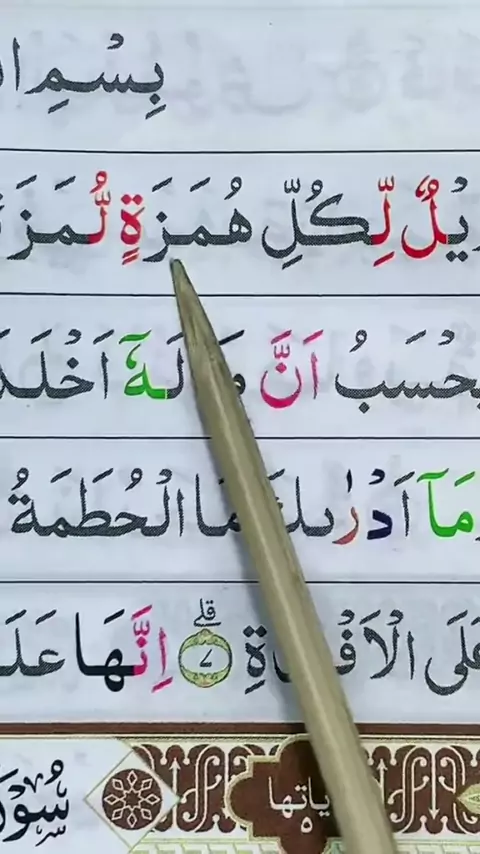 بِسْمِ
لٌ لِّكُلِّ هُمَزَةٍ لُّمَزَ
يَحْسَبُ اَنَّ مَالَهٗۤ اَخْلَدَ
مَاۤ اَدْرٰىكَ مَا الْحُطَمَةُ
عَلَى الْاَفْـِٕدَةِ ۷ قلے اِنَّهَا عَلَ
سُوْرَ یاتها ٥